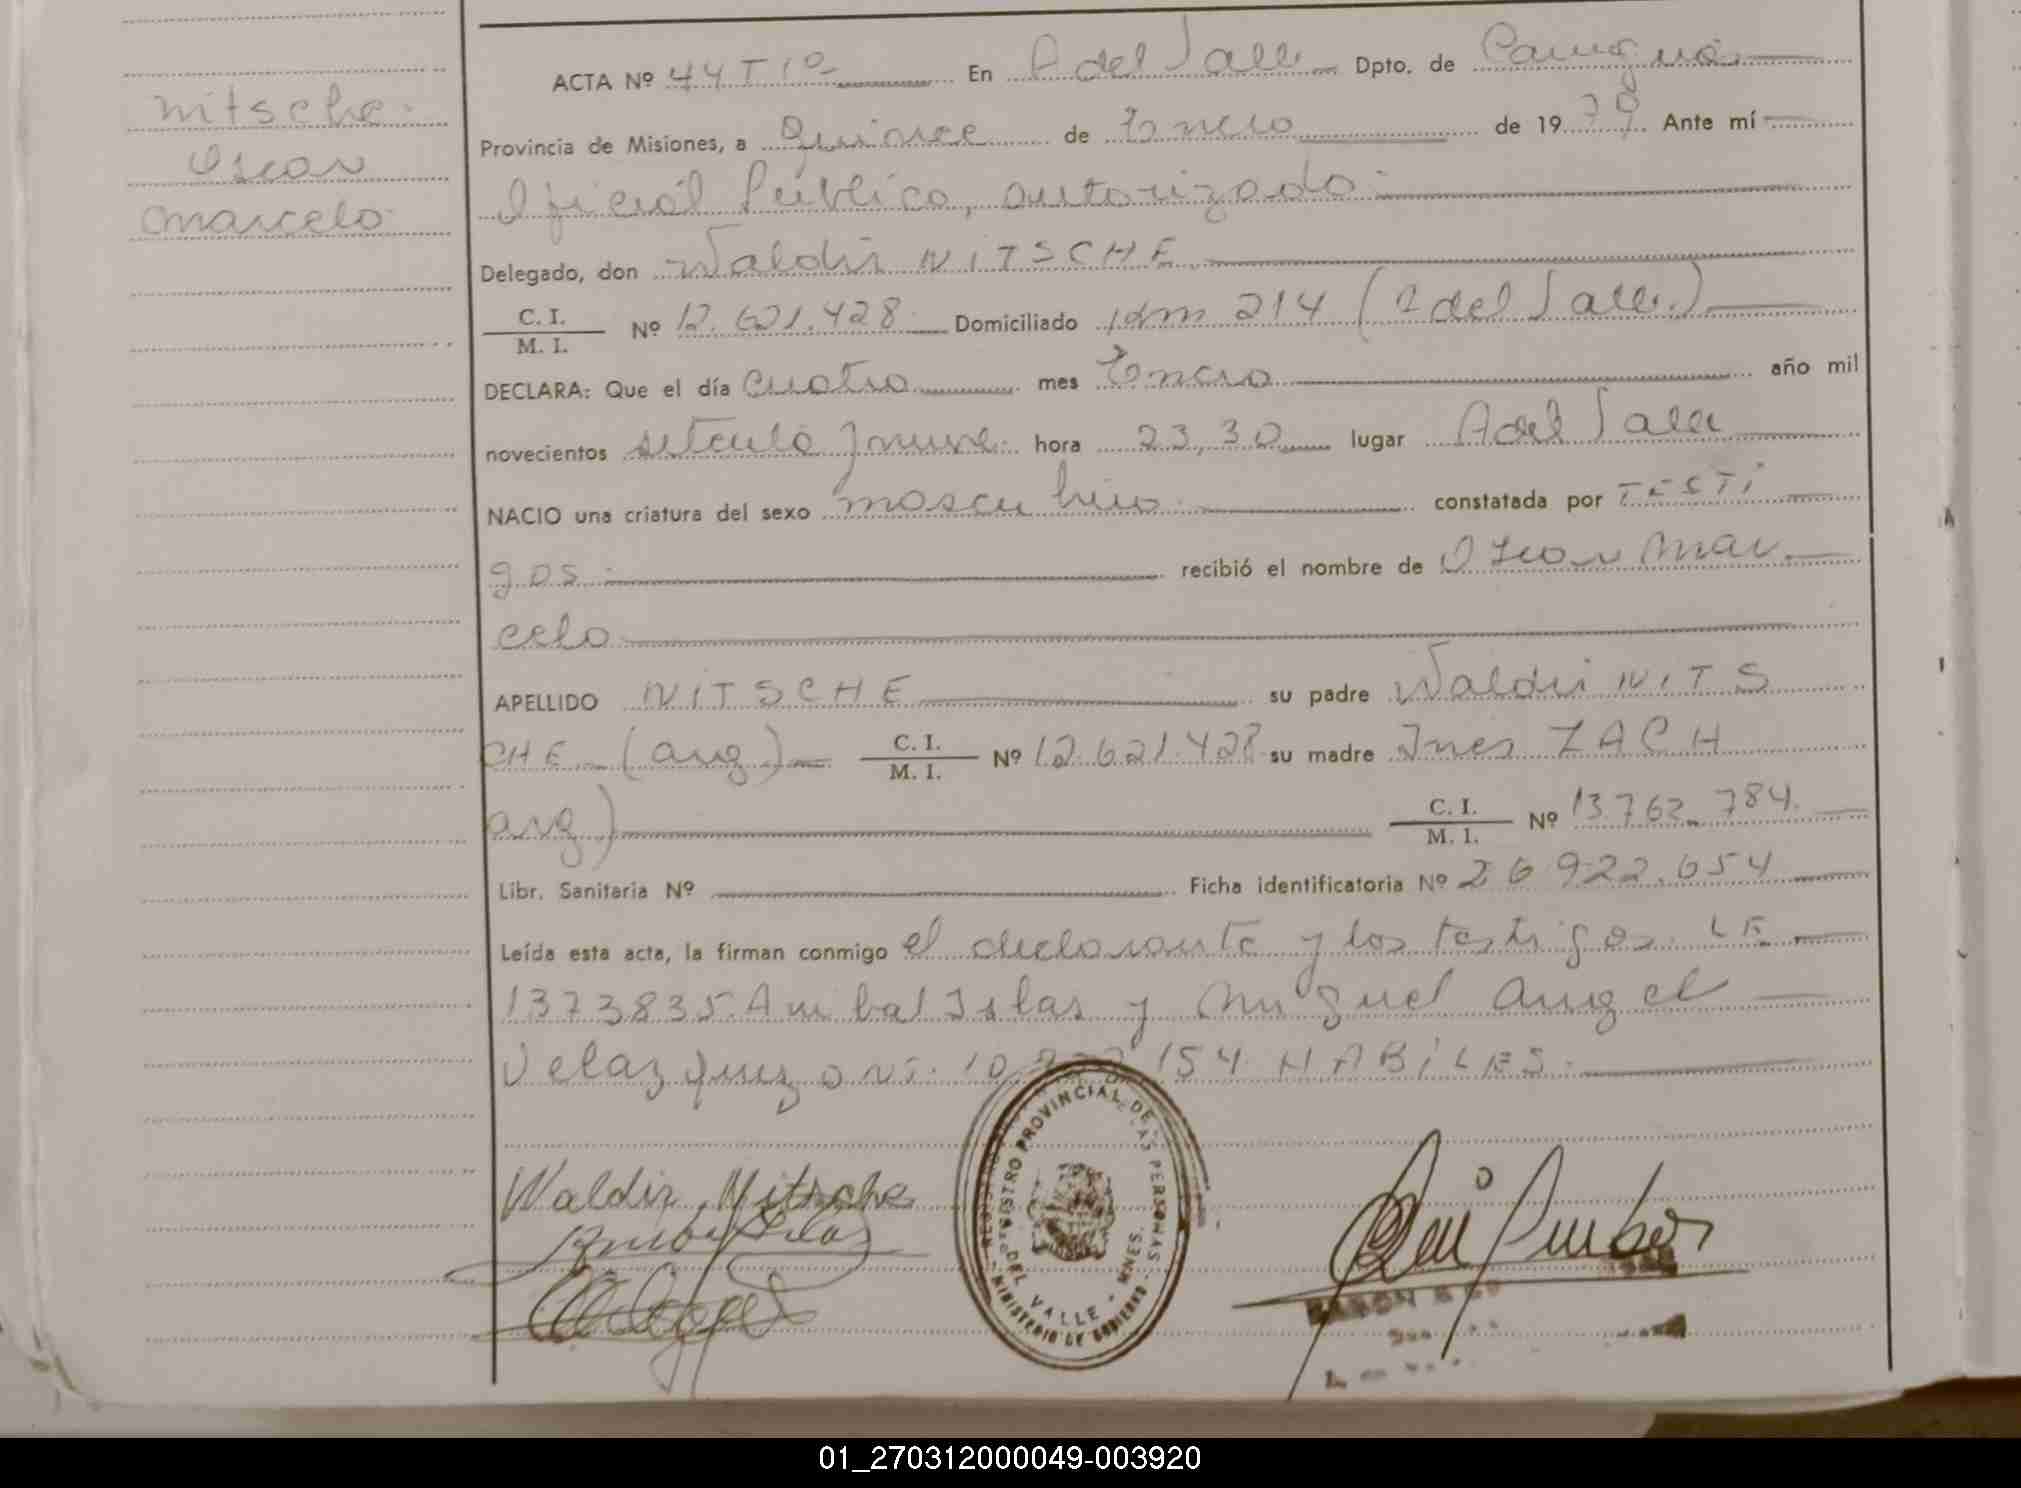 nitsche
Oscar
Marcelo
ACTA Nº 44 T 1º En A del Valle Dpto. de Cainguás
Provincia de Misiones, a Quince de Enero de 1979 Ante mí
Oficial Público, autorizado
Delegado, don Waldir NITSCHE
C. I.
M. I. Nº 12.621.428 Domiciliado Km 214 (A del Valle)
DECLARA: Que el día Cuatro mes Enero año mil
novecientos setenta y nueve hora 23,30 lugar A del Valle
NACIO una criatura del sexo masculino constatada por TESTi
gos recibió el nombre de Oscar Mar
celo
APELLIDO NITSCHE su padre Waldir NITS
CHE (arg) C. I.
M. I. Nº 12.621.428 su madre Ines ZACH
arg) C. I.
M. I. Nº 13.762.784
Libr. Sanitaria Nº Ficha identificatoria Nº 26922.654
Leída esta acta, la firman conmigo el declarante y los testigos. LE
1373835. Anibal Islas y Miguel Angel
Velazquez 154 HABiLES
Waldir Nitsche
REGISTRO PROVINCIAL DE LAS PERSONAS
DEL VALLE - MNES.
MINISTERIO DE GOBIERNO
01_270312000049-003920